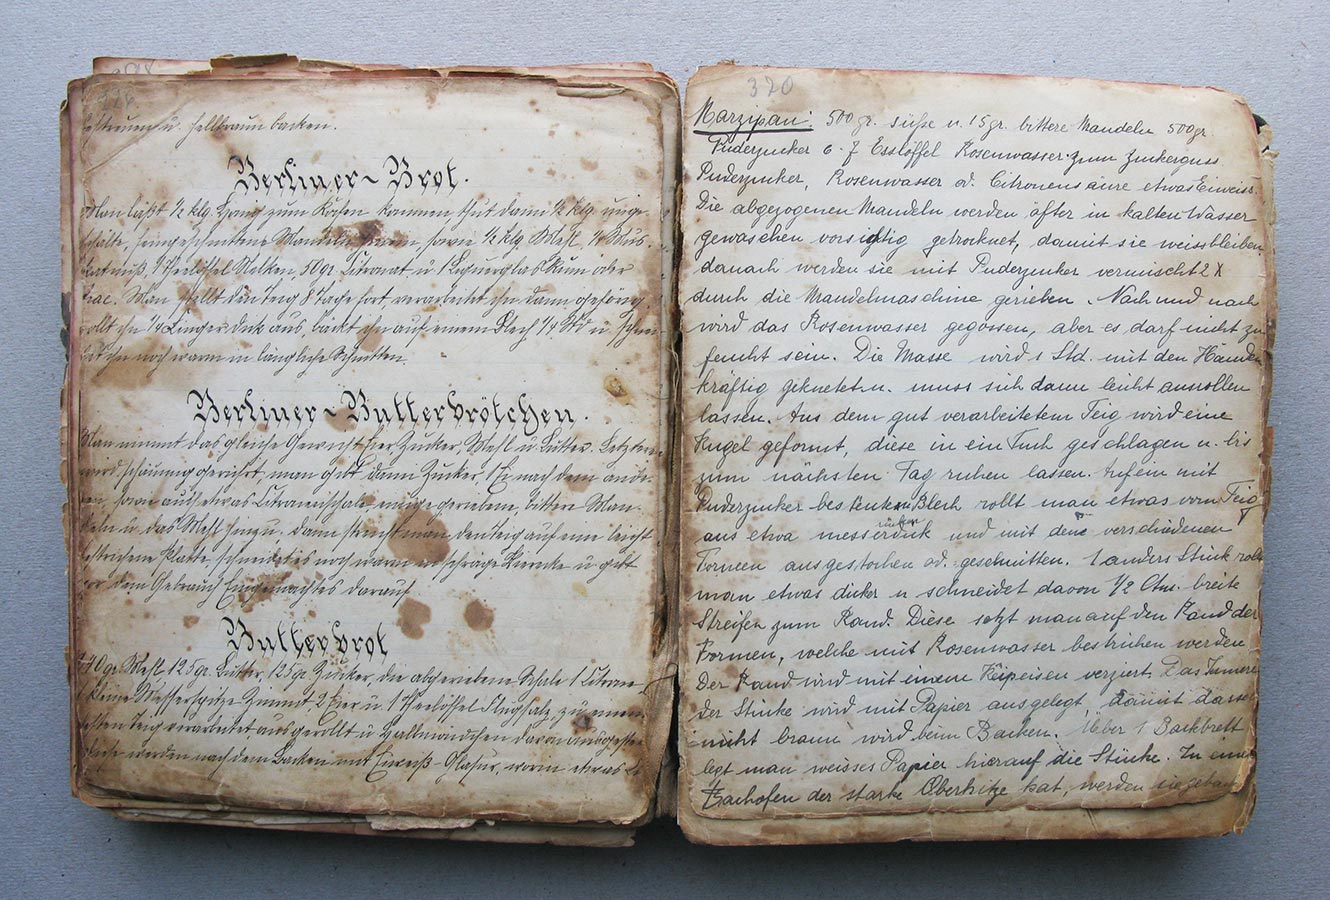 bestreuen u. hellbraun backen.
Berliner-Brot.
Man läßt ½ klg. Honig zum Kochen kommen thut dann ½ klg. unge-
schälte, feingeschnittene Mandeln sowie ½ klg Mehl, ¼ Mus-
katnuß, 1 Theelöffel Nelken, 50gr. Citronat u. 1 Liqueurglas Rum oder
rac. Man stellt den Teig 8 Tage fort verarbeitet ihn dann gehörig,
rollt ihn ¼ Finger dick aus, backt ihn auf einem Blech ¼ Std u. schnei-
det ihn noch warm in längliche Schnitten.
Berliner-Butterbrötchen.
Man nimmt das gleiche Gewicht Eier, Zucker, Mehl u. Butter. Letztere
wird schaumig gerührt, man giebt dann Zucker, 1 Ei nach dem ande-
ren, sowie auch etwas Citronenschale, einige geriebene, bittere Man-
deln u. das Mehl hinzu. Dann streicht man den Teig auf eine leicht
bestrichene Platte schneidet es noch warm in schräge Vierecke u. gibt
vor dem Gebrauch Eingemachtes darauf
Butterbrot
gr. Mehl 125gr. Butter, 125gr. Zucker, die abgeriebene Schale 1 Citrone
kleine Messerspitze Zimmt 2 Eier u. 1 Theelöffel Hirschsalz, zu einem
festen Teig verarbeitet ausgerollt u. Halbmöndchen davon ausgestochen
werden nach dem Backen mit Eiweiß-Glasur, worin etwas
320
Marzipan: 500gr. süsse u. 15gr. bittere Mandeln 500gr
Puderzucker 6-7 Esslöffel Rosenwasser. zum Zuckerguss
Puderzucker, Rosenwasser od. Citronensäure etwas Eiweiss.
Die abgezogenen Mandeln werden öfter in kalten Wasser
gewaschen vorsichtig getrocknet, damit sie weissbleiben
danach werden sie mit Puderzucker vermischt 2 x
durch die Mandelmaschine gerieben. Nach und nach
wird das Rosenwasser gegossen, aber es darf nicht zu
feucht sein. Die Masse wird 1 Std. mit den Händen
kräftig geknetet u. muss sich dann leicht ausrollen
lassen. Aus dem gut verarbeitetem Teig wird eine
Kugel geformt, diese in ein Tuch geschlagen u. bis
zum nächsten Tag ruhen lassen. Auf ein mit
Puderzucker bestreutes Blech rollt man etwas vom Teig
aus etwa messerrückendick und mit den verschiedenen
Formen ausgestochen od. geschnitten. 1 anders Stück rollt
man etwas dicker u schneidet davon 1/2 Ctm. breite
Streifen zum Rand. Diese setzt man auf den Rand der
Formen, welche mit Rosenwasser bestrichen werden
Der Rand wird mit einem Kneipeisen verziert. Das Innere
der Stücke wird mit Papier ausgelegt, damit dasselbe
nicht braun wird beim Backen. Ueber 1 Backbrett
legt man weisses Papier hierauf die Stücke. In einem
Backofen der starke Oberhitze hat, werden sie gebacken